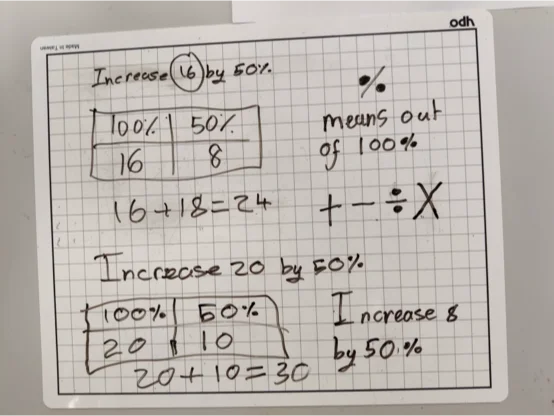 odh
Made in Taiwan
Increase 16 by 50%
100% 50%
16 8
16+18=24
%
means out
of 100%
+ - ÷ X
Increase 20 by 50%
100% 50%
20 10
20+10=30
Increase 8
by 50%